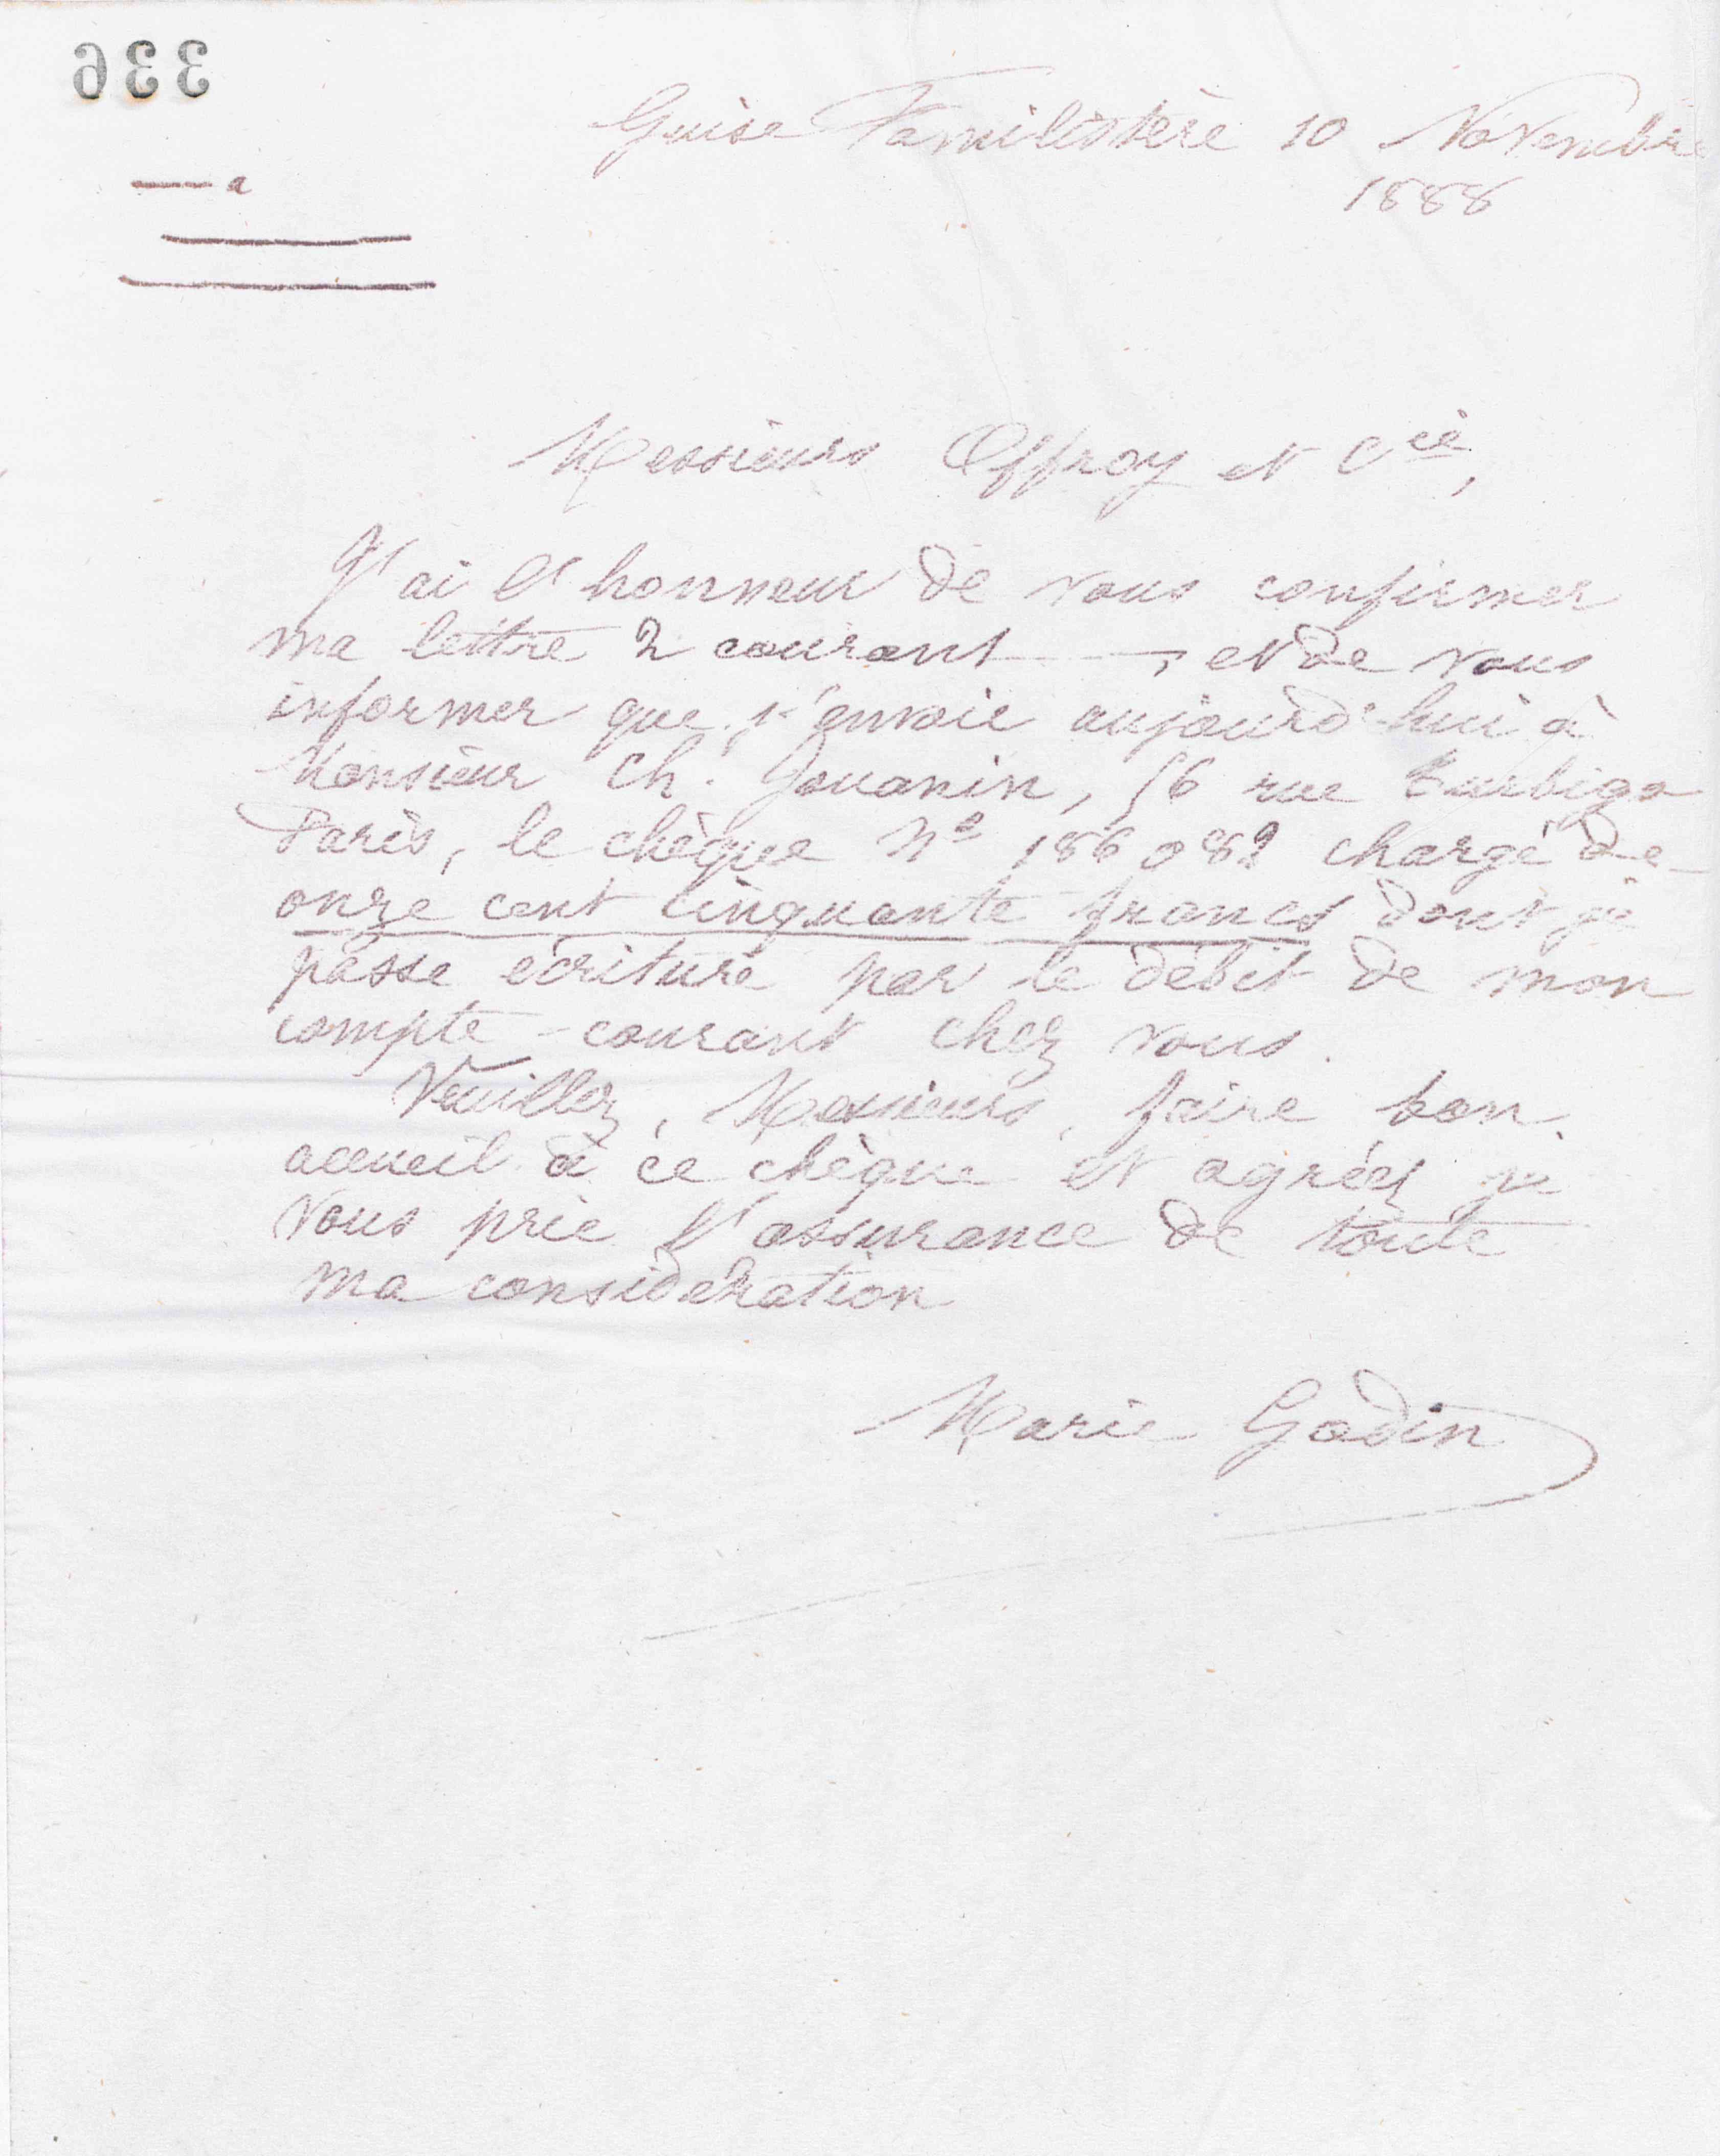 336
Guise Familistère 10 Novembre
1888
Messieurs Offroy et Cie,
J'ai l'honneur de vous confirmer
ma lettre 2 courant —, et de vous
informer que j'envoie aujourd'hui à
Monsieur Ch. Jouanin, 56 rue Turbigo
Paris, le chèque No 186 082 chargé de
onze cent cinquante francs dont je
passe écriture par le débit de mon
compte-courant chez vous.
Veuillez, Messieurs, faire bon
accueil à ce chèque et agréez je
vous prie l'assurance de toute
ma considération
Marie Godin